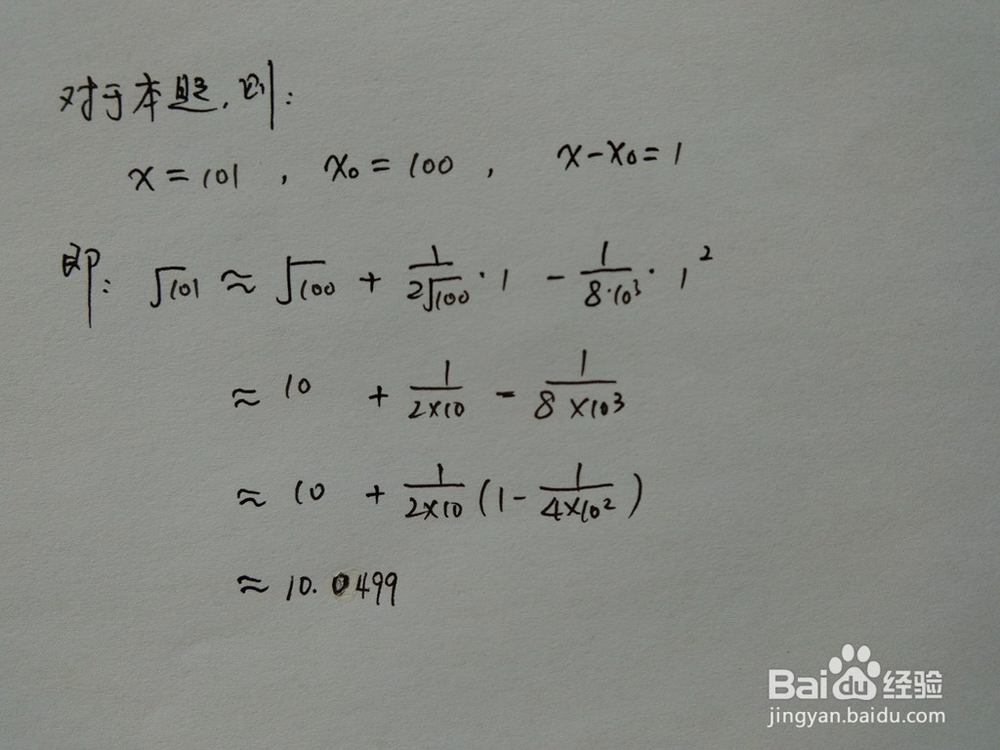 对于本题，则：
x = 101 ， x₀ = 100 ， x-x₀ = 1
即：√101 ≈ √100 + 1/(2√100)·1 - 1/(8·10³)·1²
≈ 10 + 1/(2×10) - 1/(8×10³)
≈ 10 + 1/(2×10) (1 - 1/(4×10²))
≈ 10.0499
Bai du 经验
jingyan.baidu.com